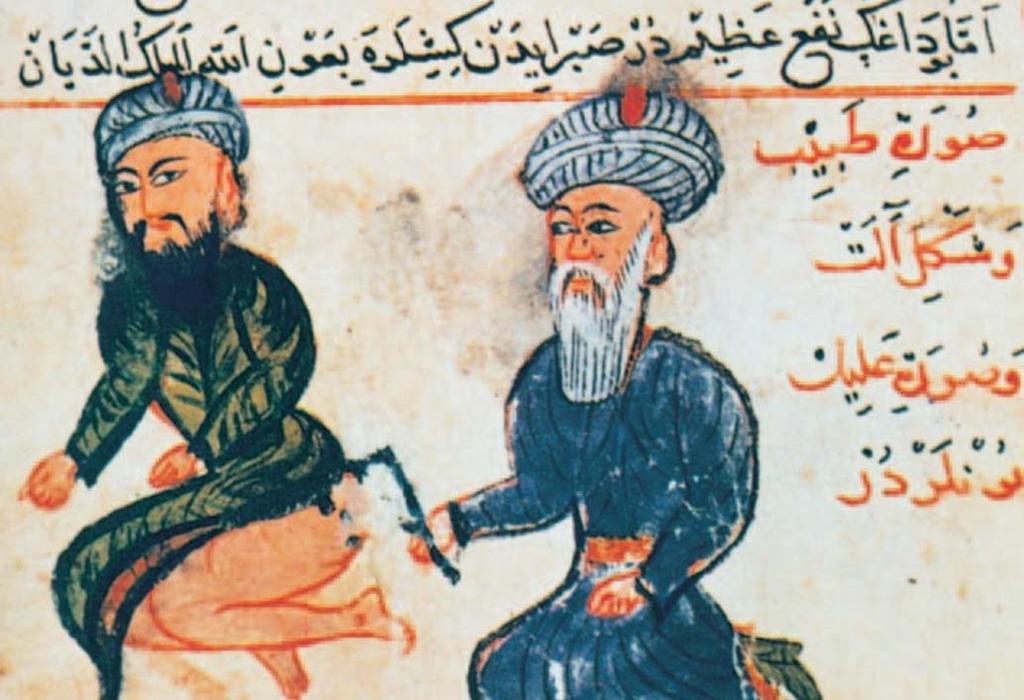 اَمَّا بُو دَاغَكْ نَفْعِ عَظِيمْ دُرْ صَبْر اِيدَنْ كِشِلَرَه بِعَوْنِ اللهِ الْمَلِكِ الدَّيَانْ
صُورَةِ طَبِيبْ
وَشَكِلِ آلَتْ
وَصُورَةِ عَلِيلْ
بُونْلَرْدُرْ